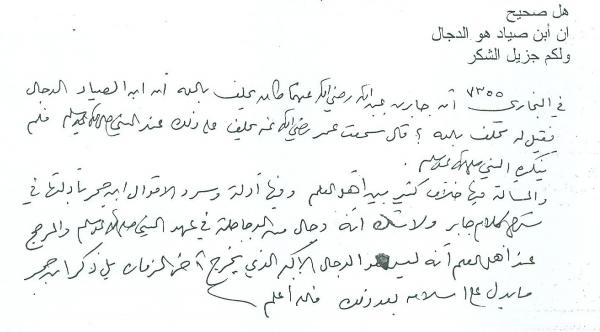 هل صحيح
ان أبن صياد هو الدجال
ولكم جزيل الشكر
في البخاري ٧٣٥٥ أن جابر بن عبدالله رضي الله عنهما كان يحلف بالله أن ابن الصياد الدجال
فقيل له تحلف بالله ؟ قال سمعت عمر رضي الله عنه يحلف على ذلك عند النبي صلى الله عليه وسلم فلم
ينكره النبي صلى الله عليه وسلم
والمسألة فيها خلاف كثير بين أهل العلم وفيها أدلة وسرد الاقوال ابن حجر بأدلتها في
شرح كلام جابر ولا شك أنه دجال من الدجاجلة في عهد النبي صلى الله عليه وسلم والمرجح
عند أهل العلم أنه ليس هو الدجال الأكبر الذي يخرج آخر الزمان بل ذكر ابن حجر
ما يدل على اسلامه بعد ذلك فالله أعلم